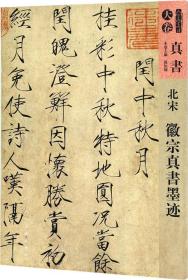 大卷
真書
北宋
徽宗真書墨迹
閏中秋月
桂彩中秋特地圓況當餘
閏魄澄鮮因懷勝賞初
經月免使詩人嘆隔年